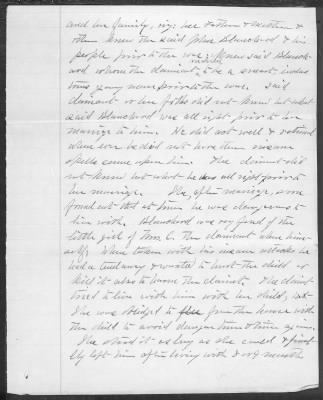 and her family, viz: her Father & Mother &
others knew the said John Blanchard & his
people prior to the war; Knew said Blanch-
ard whom the claimant married, to be a smart indus
trious young man prior to the war. Said
claimant or her folks did not know but what
said Blanchard was all right prior to her
marriage to him. He did act well & rational
when ever he did not have them insane
spells come upon him. The claimant did
not know but what he was all right prior to
her marriage. She, after marriage, soon
found out that at times he was dangerous to
live with. Blanchard was very fond of the
little girl of Mrs. C. the claimant when him-
self; When taken with his insane attacks he
had a tendency & wanted to hurt the child or
kill it also to harm the claimant. The claimt
tried to live with him with her child, but
she was obliged to flee from the house with
the child to avoid danger time & time again.
She stood it as long as she could & final
ly left him after living with 3 or 4 months